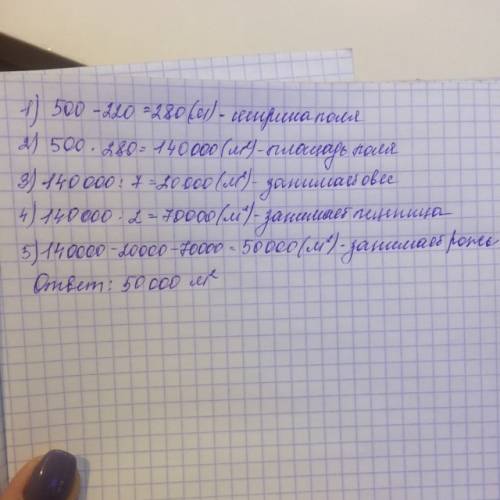 1) 500 - 220 = 280 (м) - ширина поля
2) 500 · 280 = 140000 (м²) - площадь поля
3) 140000 : 7 = 20000 (м²) - занимает овес
4) 140000 · 2 = 70000 (м²) - занимает пшеница
5) 140000 - 20000 - 70000 = 50000 (м²) - занимает рожь
Ответ: 50000 м²